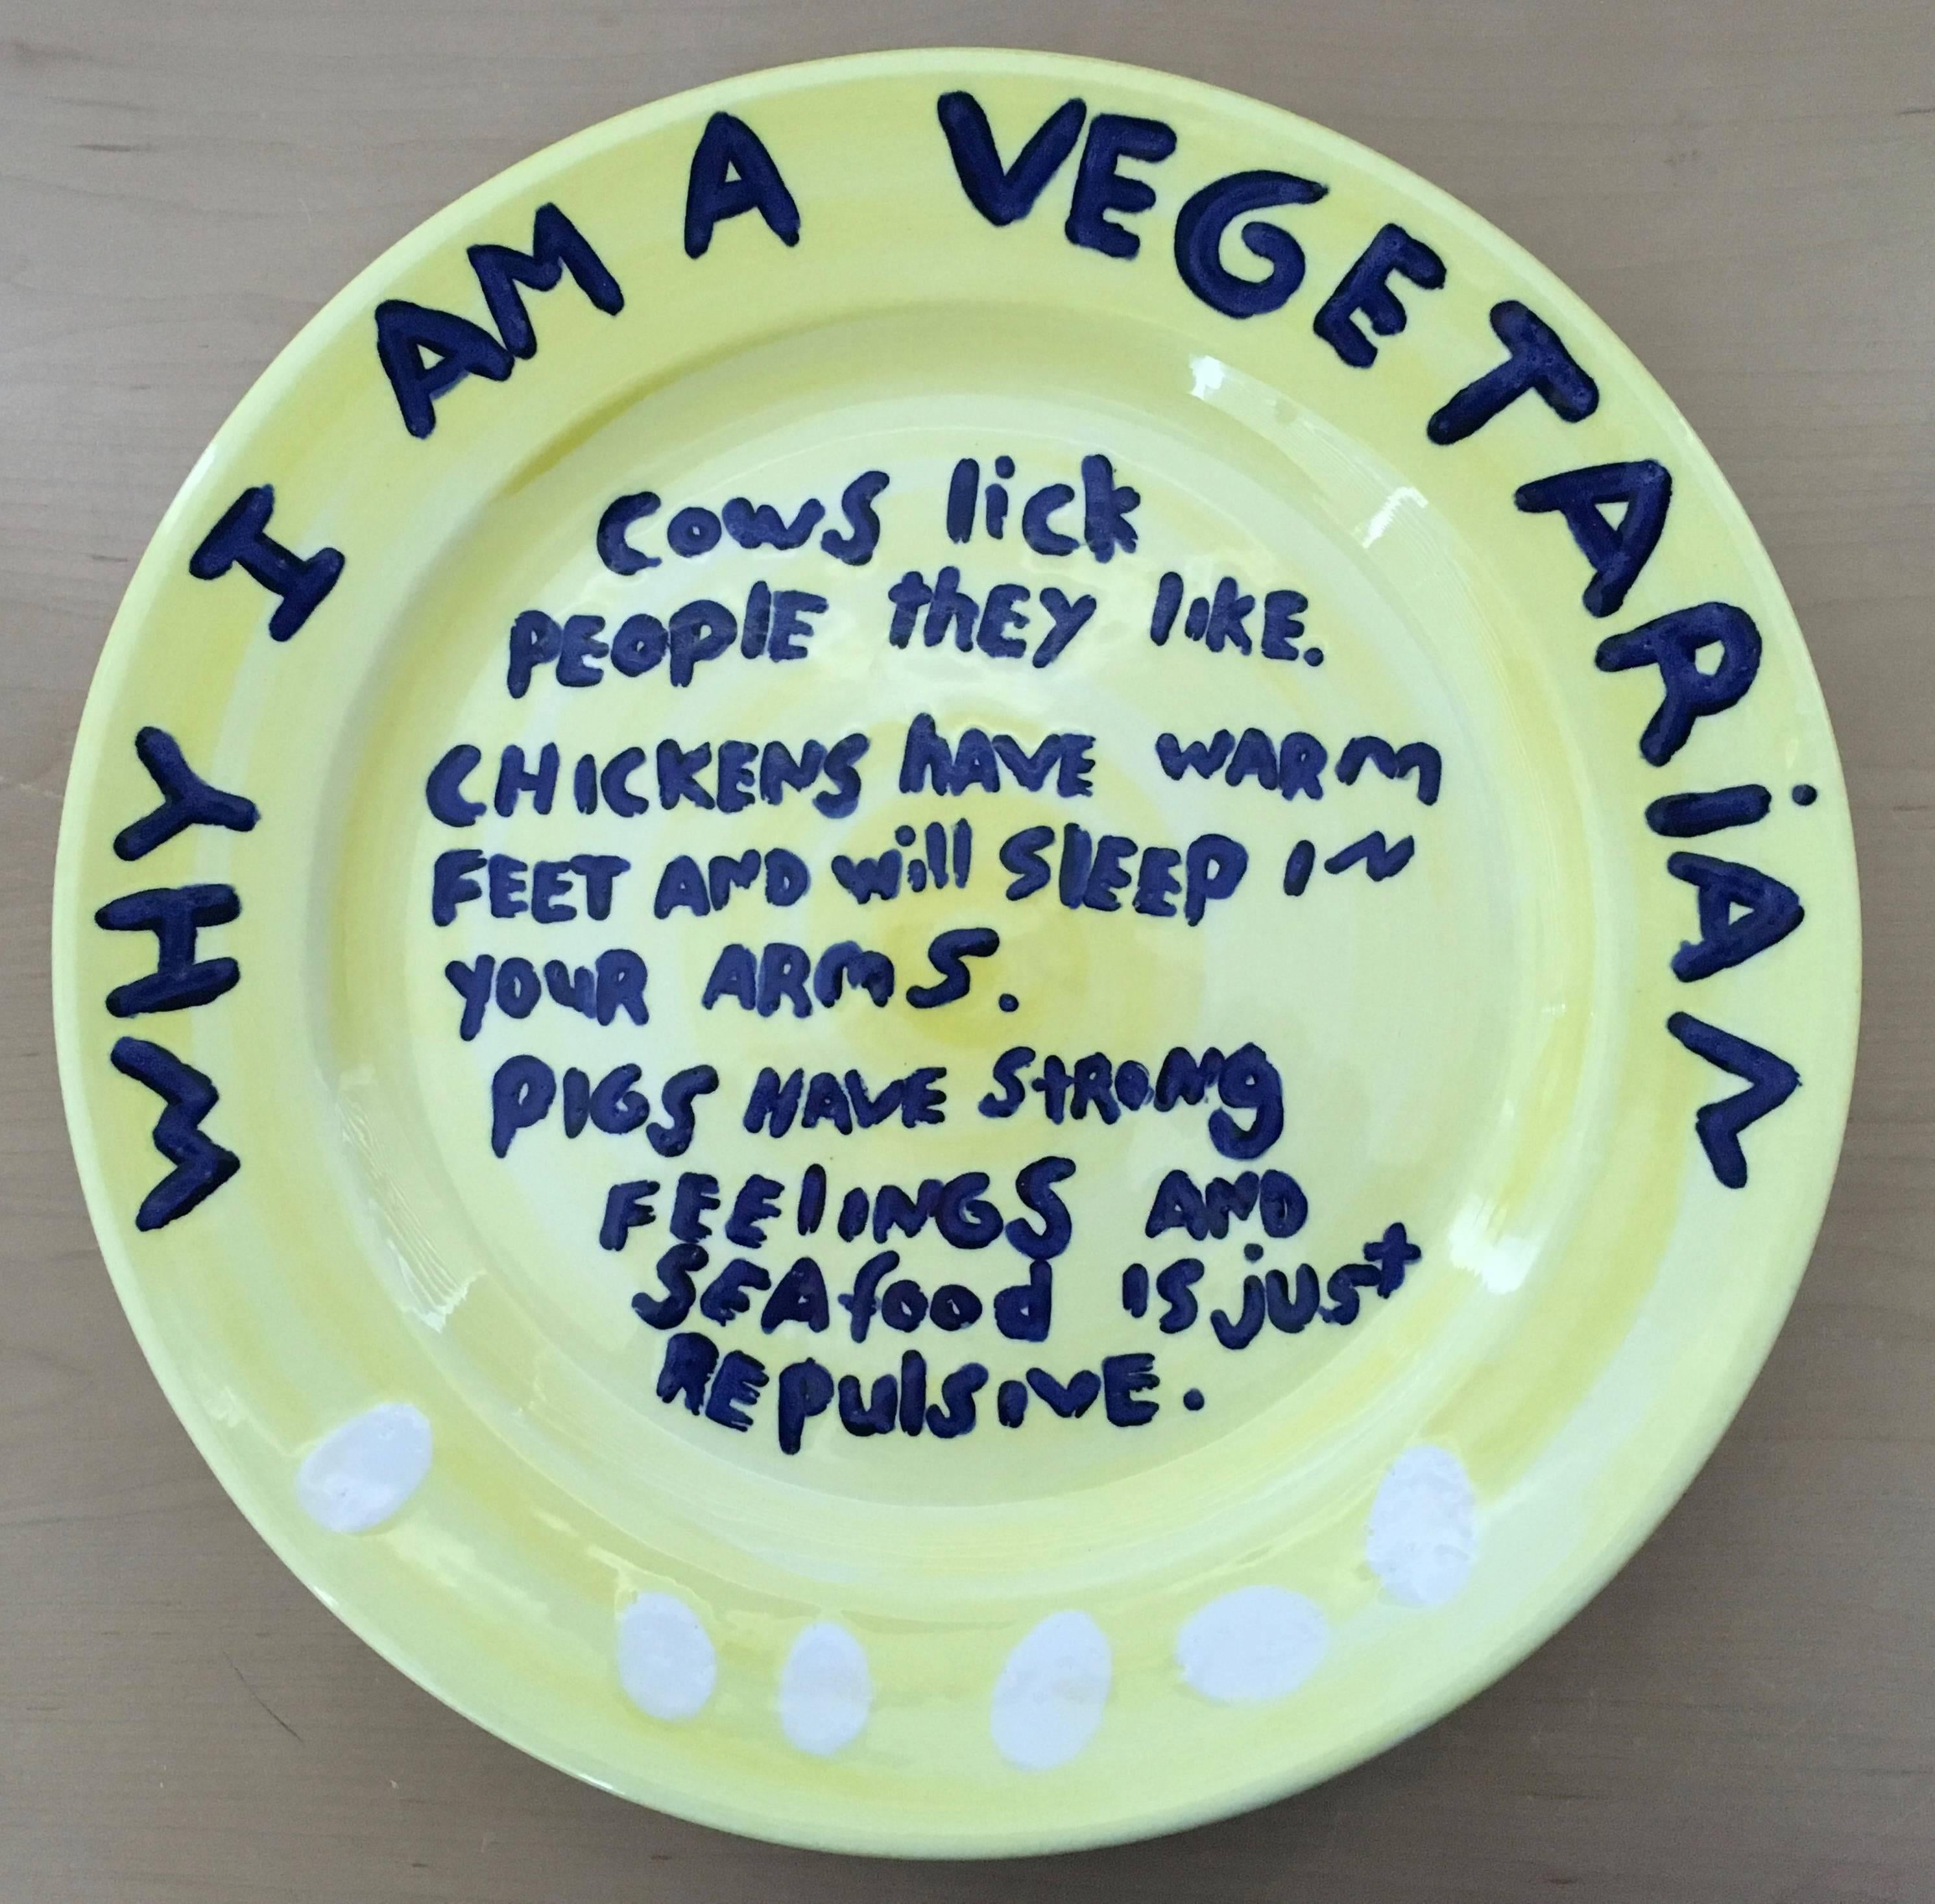 WHY I AM A VEGETARiAN
Cows lick
PEOplE thEY likE.
CHICKENS hAVE WARm
FEET AND will SlEEP IN
YOUR ARmS.
PIGS HAVE StRoNg
FEElINGS AND
SEAfood IS just
REpulsIVE.